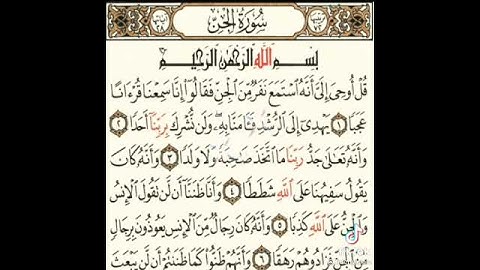 سُورَةُ الْجِنِّ
بِسْمِ اللَّهِ الرَّحْمَٰنِ الرَّحِيمِ
قُلْ أُوحِيَ إِلَيَّ أَنَّهُ اسْتَمَعَ نَفَرٌ مِّنَ الْجِنِّ فَقَالُوا إِنَّا سَمِعْنَا قُرْءَانًا
عَجَبًا ١ يَهْدِي إِلَى الرُّشْدِ فَـَٔامَنَّا بِهِ وَلَن نُّشْرِكَ بِرَبِّنَا أَحَدًا ٢
وَأَنَّهُ تَعَالَىٰ جَدُّ رَبِّنَا مَا اتَّخَذَ صَاحِبَةً وَلَا وَلَدًا ٣ وَأَنَّهُ كَانَ
يَقُولُ سَفِيهُنَا عَلَى اللَّهِ شَطَطًا ٤ وَأَنَّا ظَنَنَّا أَن لَّن نَّقُولَ الْإِنسُ
وَالْجِنُّ عَلَى اللَّهِ كَذِبًا ٥ وَأَنَّهُ كَانَ رِجَالٌ مِّنَ الْإِنسِ يَعُوذُونَ بِرِجَالٍ
مِّنَ الْجِنِّ فَزَادُوهُمْ رَهَقًا ٦ وَأَنَّهُمْ ظَنُّوا كَمَا ظَنَنتُمْ أَن لَّن يَبْعَثَ